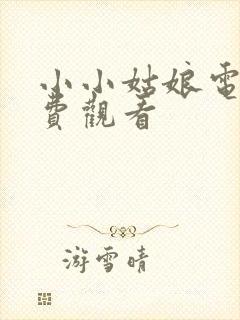 小小姑娘電
費觀看
游雪晴